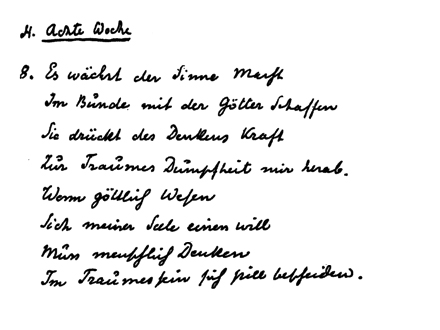 H. Achte Woche
8. Es wächst der Sinne Macht
Im Bunde mit der Götter Schaffen
Sie drückt des Denkens Kraft
Zur Traumes Dumpfheit mir herab.
Wenn göttlich Wesen
Sich meiner Seele einen will
Muss menschlich Denken
Im Traumessein sich still bescheiden.